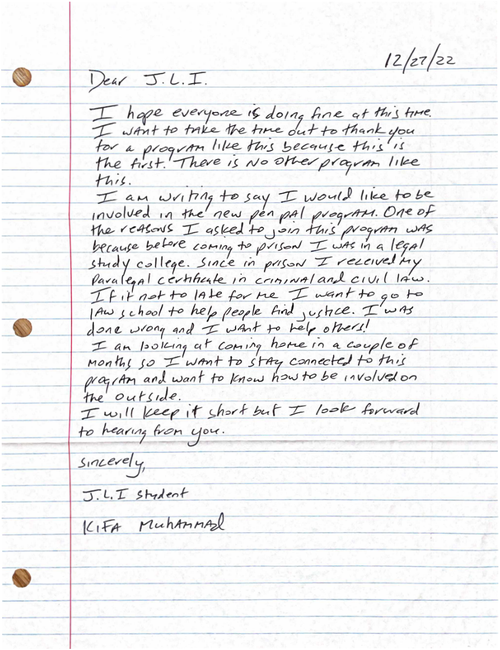 12/27/22
Dear J.L.I.
I hope everyone is doing fine at this time.
I want to take the time out to thank you
for a program like this because this is
the first! There is no other program like
this.
I am writing to say I would like to be
involved in the new pen pal program. One of
the reasons I asked to join this program was
because before coming to prison I was in a legal
study college. Since in prison I received my
Paralegal certificate in criminal and civil law.
If it not to late for me I want to go to
law school to help people find justice. I was
done wrong and I want to help others!
I am looking at coming home in a couple of
months so I want to stay connected to this
program and want to know how to be involved on
the outside.
I will keep it short but I look forward
to hearing from you.
Sincerely,
J.L.I student
Kifa Muhammad